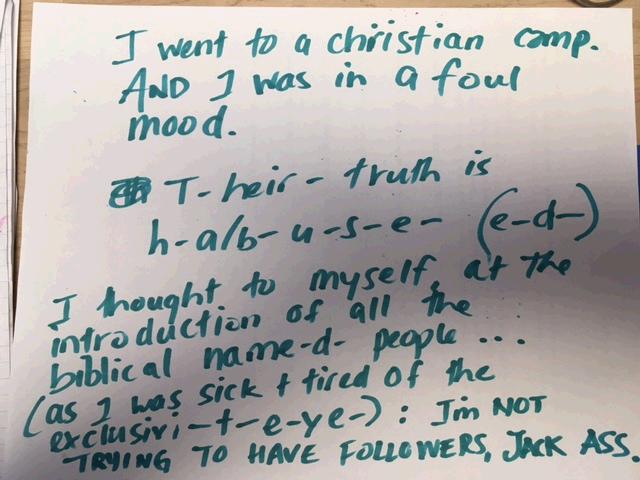 I went to a christian camp.
AND I was in a foul
mood.
T-heir- truth is
h-a/b-u-s-e- (e-d-)
I thought to myself, at the
introduction of all the
biblical name-d- people ...
(as I was sick + tired of the
exclusivi-t-e-ye-) : I'm NOT
TRYING TO HAVE FOLLOWERS, JACK ASS.